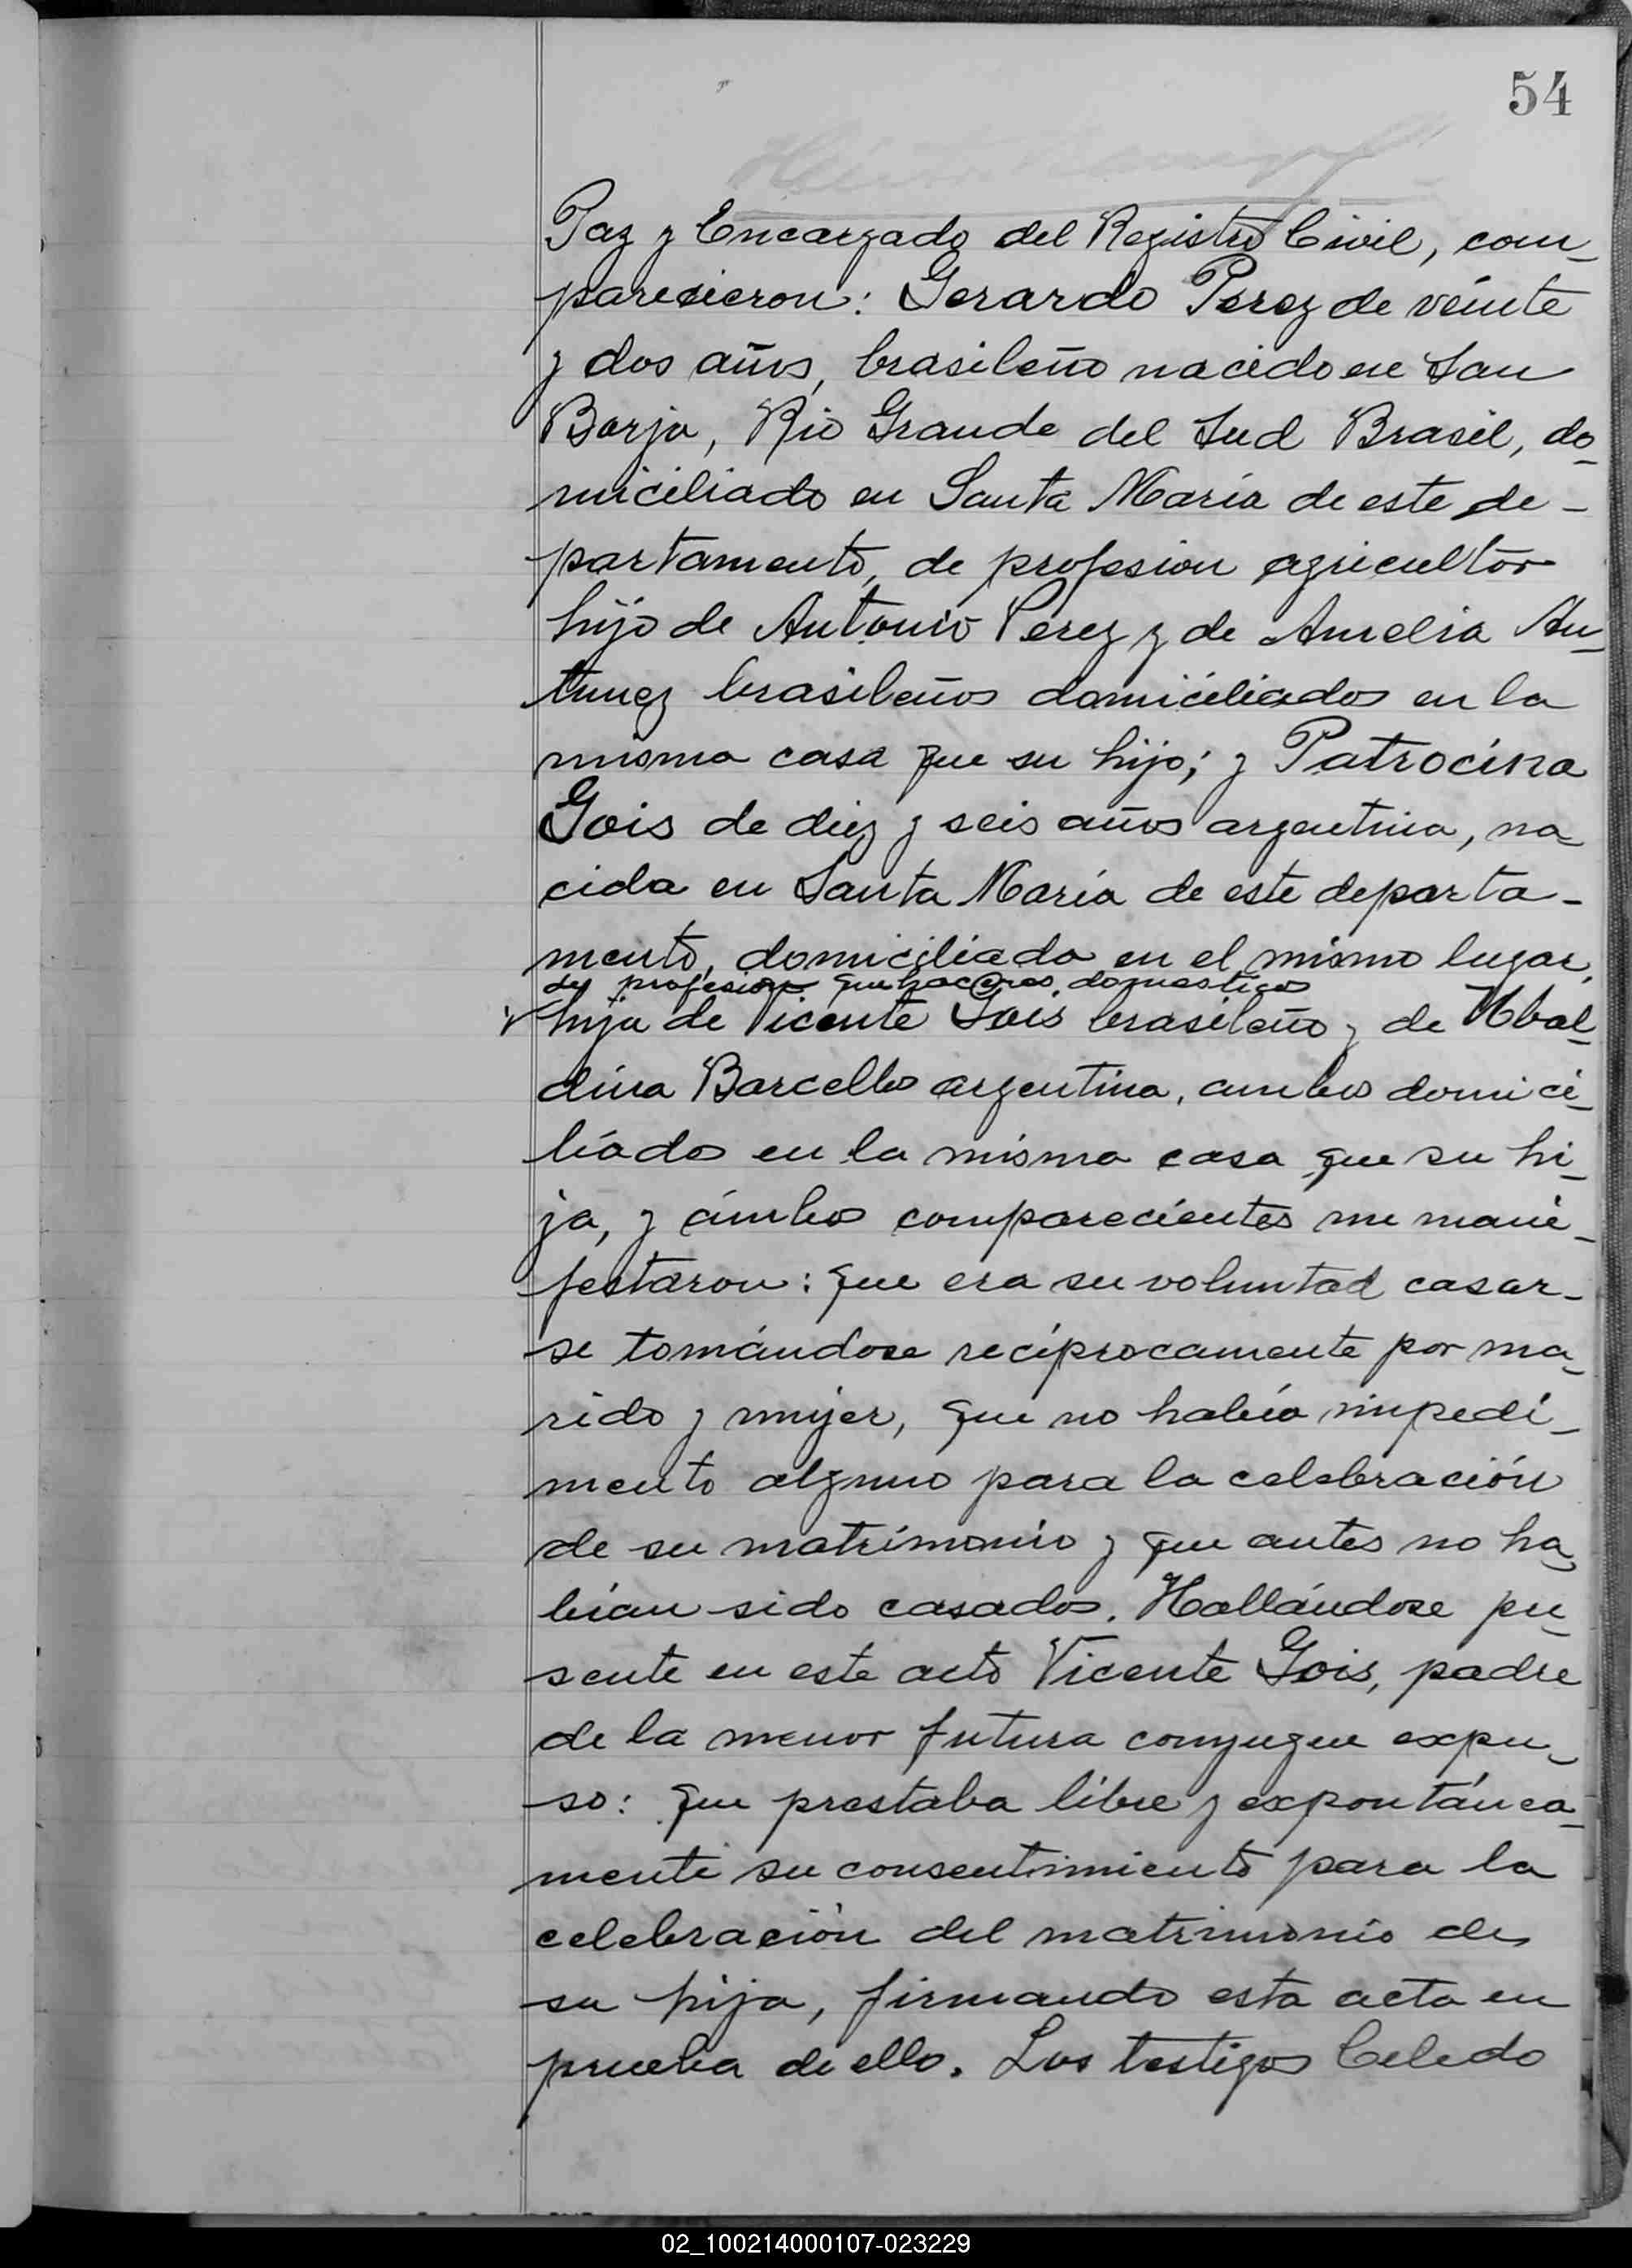 54
Paz y Encargado del Registro Civil, com-
parecieron: Gerardo Perez de veinte
y dos años, brasileño nacido en San
Borja, Rio Grande del Sud Brasil, do-
miciliado en Santa María de este de-
partamento, de profesion agricultor
hijo de Antonio Perez y de Amelia An-
tunez brasileños domiciliados en la
misma casa que su hijo; y Patrocina
Gois de diez y seis años argentina, na-
cida en Santa María de este departa-
mento, domiciliada en el mismo lugar,
de profesion quehaceres domesticos
hija de Vicente Gois brasileño y de Ubal-
dina Barcellos argentina, ambos domici-
liados en la misma casa que su hi-
ja, y ámbos comparecientes me mani-
festaron: que era su voluntad casar-
se tomándose recíprocamente por ma-
rido y mujer, que no había impedi-
mento alguno para la celebración
de su matrimonio y que antes no ha-
bían sido casados. Hallándose pre-
sente en este acto Vicente Gois, padre
de la menor futura conyugue expu-
so: que prestaba libre y expontánea-
mente su consentimiento para la
celebración del matrimonio de
su hija, firmando esta acta en
prueba de ello. Los testigos Celedo
02_100214000107-023229